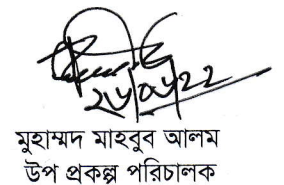 ২৮/০৮/২২
মুহাম্মদ মাহবুব আলম
উপ প্রকল্প পরিচালক